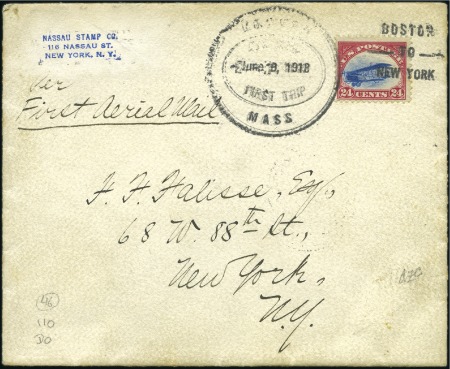 NASSAU STAMP CO.
116 NASSAU ST.
NEW YORK, N. Y.
BOSTON
TO
NEW YORK
June 6, 1918
FIRST TRIP
MASS
U.S. POSTAGE
24 CENTS 24
per
First Aerial Mail
68 W. 88th St.,
New York,
N.Y.
46
110